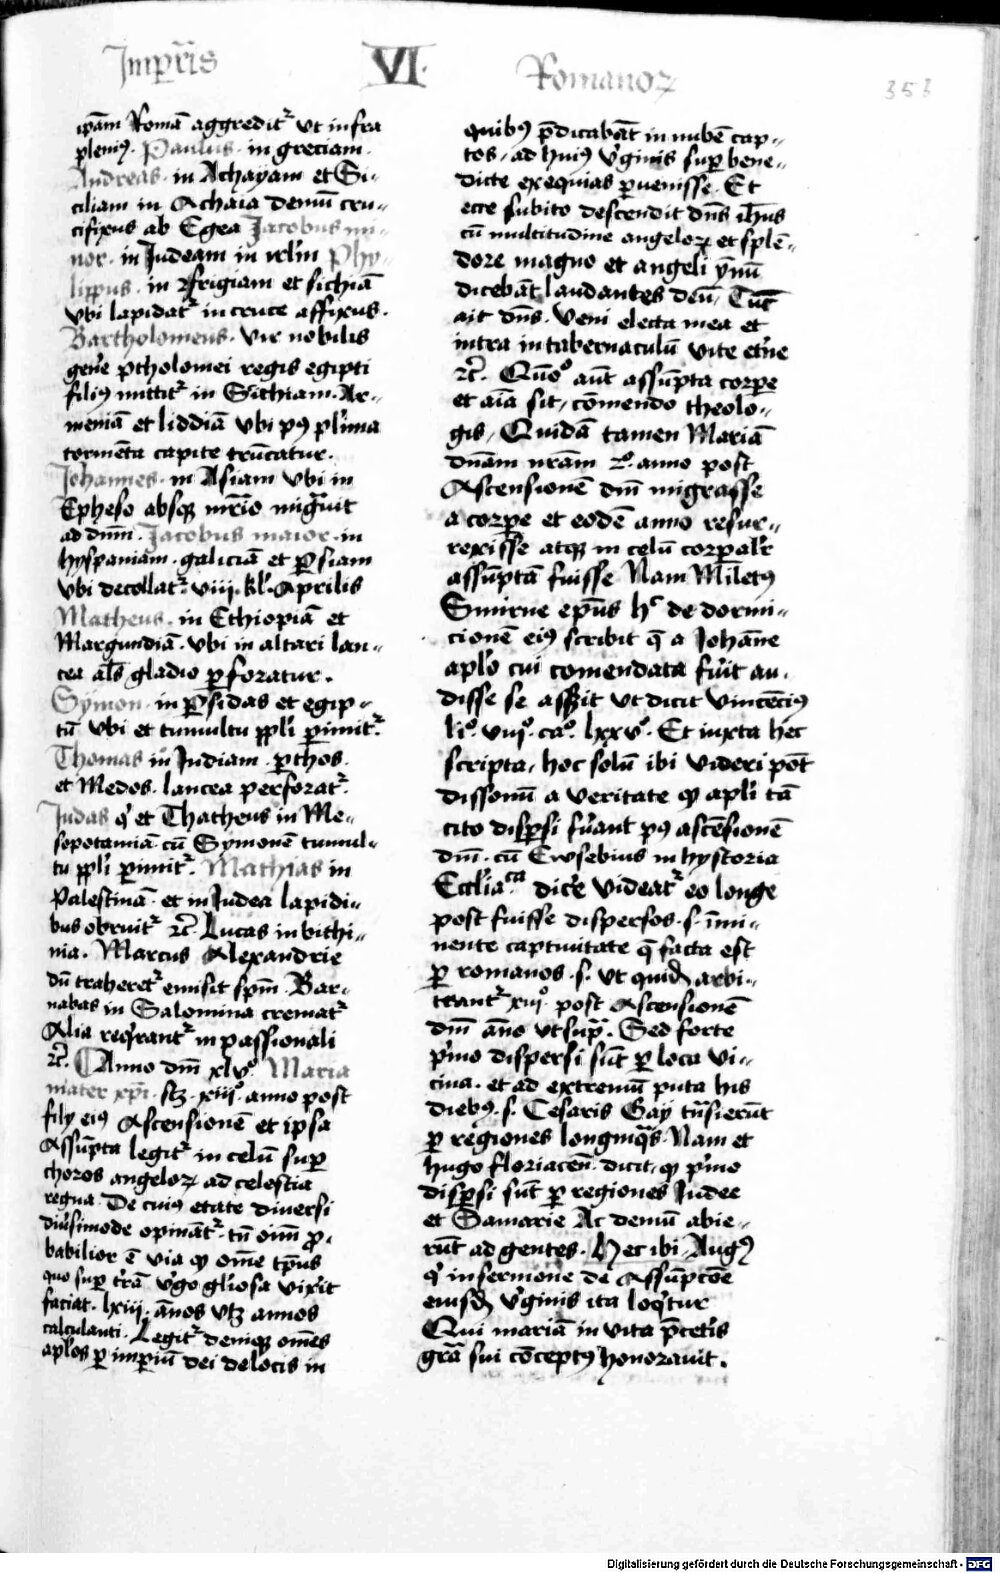 Imp̄r̄is VI. Romanoꝝ 353
ip̄am Romā aggreditᷣ ut infra
pleniꝰ. Paulus. in greciam.
Andreas. in Achayam et Si-
ciliam in Achaia demū cru-
cifixus ab Egea Jacobus mi-
nor. in Judeam in irl̄m Phy-
lippus. in frigiam et sichiā
ubi lapidatᷣ in cruce affixus.
Bartholomeus. vir nobilis
gen̄e ptholomei regis egipti
filiꝰ mittitᷣ in Sithiam. Ar-
meniā et liddiā ubi pꝰ pl̄ima
tormēta capite trūcatur.
Johannes. in Asiam ubi in
Epheso absqꝫ mr̄io mig̃uit
ad dnm̄. Jacobus maior. in
hyspaniam. galiciā et ꝑsiam
ubi decollatᷣ. viii. kl̄. Aprilis
Matheus. in Ethiopiā et
Margundiā. ubi in altari lan-
cea al̄s gladio ꝑforatur.
Symon. in ꝑsidas et egip-
tū ubi et tumultu ppl̄i ꝑimitᷣ.
Thomas in Indiam. ꝑthos.
et Medos. lancea perforatᷣ.
Judas qͥ et Thatheus in Me-
sopotamiā. cū Symonē tumul-
tu ppl̄i ꝑimitᷣ. Mathias in
Palestinā. et in Judea lapidi-
bus obruitᷣ ⁊c̄. Lucas in bithi-
nia. Marcus Alexandrie
dū traheretᷣ emisit spm̄. Bar-
nabas in Salomina crematᷣ
Alia reqͥrantᷣ in passionali
⁊c̄. Anno dm̄ xlvͦ. Maria
mater xp̄i. scꝫ. xiiiͦ. anno post
filij eiꝰ Ascensionē et ipsa
Assūpta legitᷣ in celū suꝑ
choros angeloꝝ ad celestia
regna. De cuiꝰ etate diuersi
diūsimode opinātᷣ. tn̄ oim̄ ꝓ-
babilior ē via qꝫ om̄e tp̄us
quo suꝑ tr̄ā v̄go gl̄iosa vixit
faciat. lxiii. ānos utꝫ annos
calculanti. Legitᷣ deniqꝫ om̄es
apl̄os ꝑ imꝑiū dei de locis in
quibꝰ p̄dicabāt in nubē cap-
tos, ad huiꝰ v̄ginis suꝑ bene-
dicte exequias ꝑuenisse. Et
ecce subito descendit dn̄s ih̄us
cū multitudine angeloꝝ et splē-
dore magno et angeli ymnū
dicebāt laudantes deū, Tūc
ait dn̄s. Veni electa mea et
intra in tabernaculū vite et̄ne
⁊c̄. Quōͦ aūt assūpta corꝑe
et aīa sit, cōmendo theolo-
gis, Quidā tamen Mariā
dn̄am nr̄am 2ͦ. anno post
Ascensionē dm̄ migrasse
a corꝑe et eodē anno resur-
rexisse atqꝫ in celū corꝑalr̄
assūptā fuisse Nam Miletꝰ
Smirne ep̄us hͨ de dormi-
cionē eiꝰ scribit q̄ a Johāne
apl̄o cui comendata fuit au-
disse se ass̄it ut dicit Vincēciꝰ
liͦ. viiiͦ. caͦ. lxxvͦ. Et iuxta hec
scripta, hoc solū ibi videri pōt
dissonū a veritate qꝫ apl̄i tā
cito disꝑsi fūant pꝰ ascēsionē
dm̄. cū Ewsebius in hystoria
Eccl̄iaᶜᵃ. dic̄e videatᷣ eo longe
post fuisse dispersos. s. īmi-
nente captiuitate q̄ facta est
ꝑ romanos. s. ut quidā arbi-
trantᷣ xiiiͦ. post Ascensionē
dm̄ āno ut sup̄. Sed forte
pͥmo dispersi sūt ꝑ loca vi-
cina. et ad extremū puta his
diebꝰ. s. Cesaris Gay tn̄sierūt
ꝑ regiones longinq̄s. Nam et
hugo floriacen̄. dicit, qꝫ pͥmo
disꝑsi sūt ꝑ regiones Judee
et Samarie Ac demū abie-
rūt ad gentes. Hec ibi Augꝰ
qͥ in sermone de Assūpcōe
eiusdē v̄ginis ita loqͥtur
Qui mariā in vita p̄cetīs
gr̄a sui cōceptꝰ honorauit.
Digitalisierung gefördert durch die Deutsche Forschungsgemeinschaft - DFG